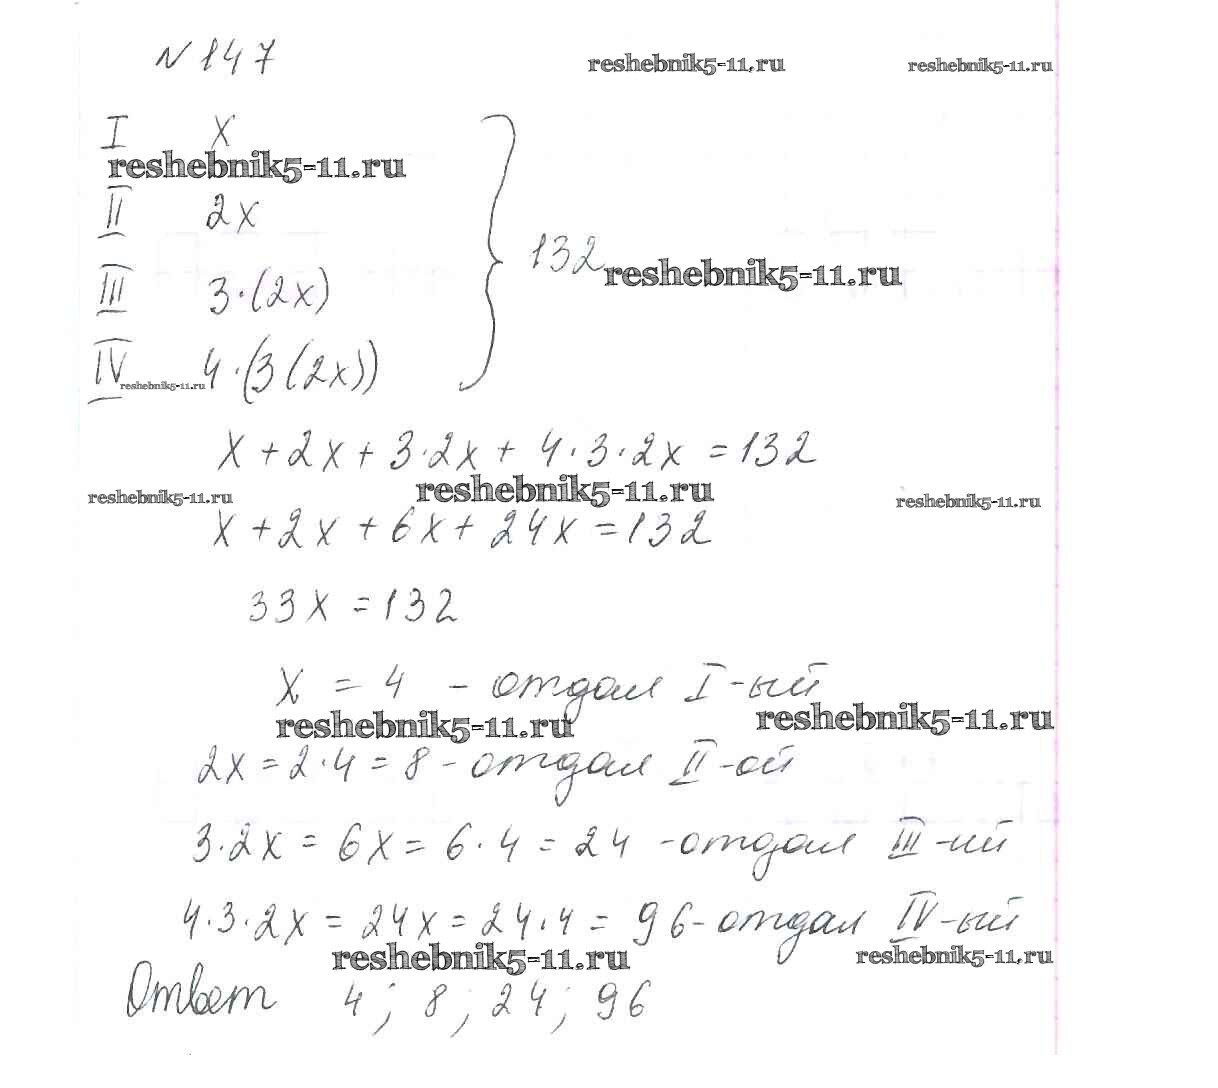 N 147
reshebnik5-11.ru reshebnik5-11.ru
I x
reshebnik5-11.ru
II 2x
132 reshebnik5-11.ru
III 3·(2x)
IV 4·(3(2x))
reshebnik5-11.ru
x + 2x + 3·2x + 4·3·2x = 132
reshebnik5-11.ru reshebnik5-11.ru reshebnik5-11.ru
x + 2x + 6x + 24x = 132
33x = 132
x = 4 - отдал I-ый
reshebnik5-11.ru reshebnik5-11.ru
2x = 2·4 = 8 - отдал II-ой
3·2x = 6x = 6·4 = 24 - отдал III-ий
4·3·2x = 24x = 24·4 = 96 - отдал IV-ый
reshebnik5-11.ru reshebnik5-11.ru
Ответ 4; 8; 24; 96